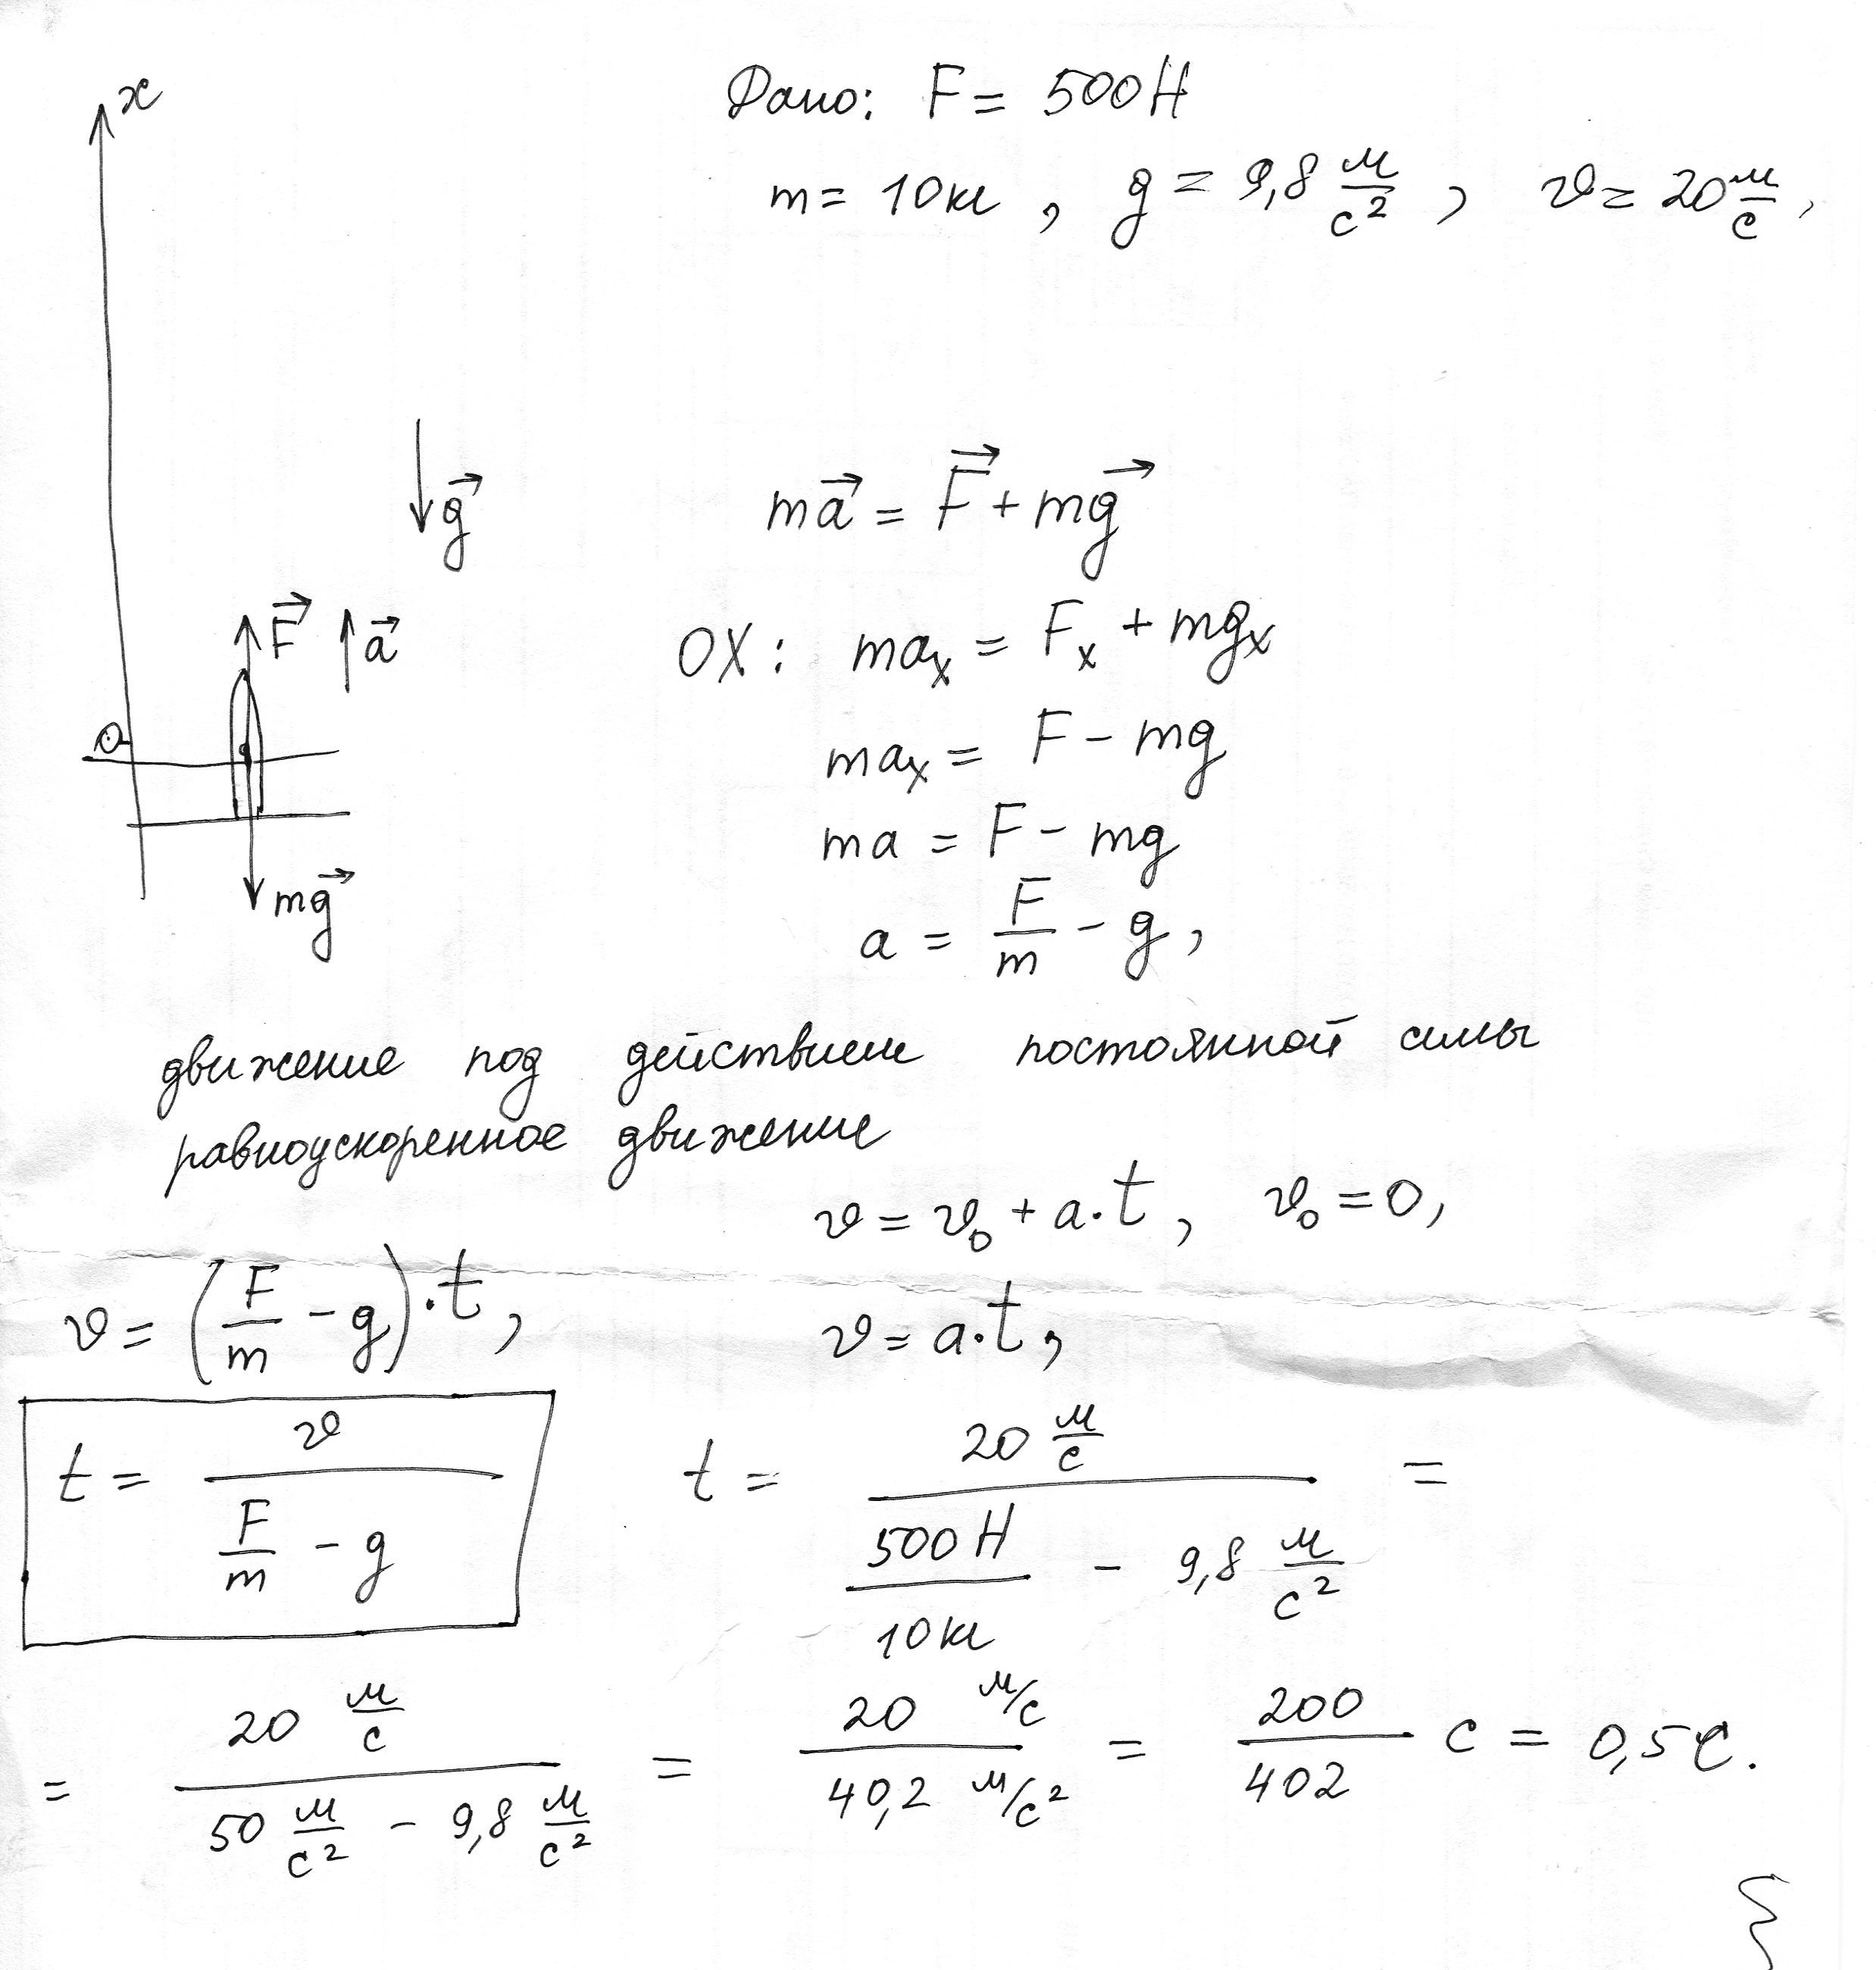 x
Дано: F = 500 Н
m = 10 кг , g = 9,8 м/с² , υ = 20 м/с ,
g⃗
ma⃗ = F⃗ + mg⃗
F⃗ a⃗
OX : maₓ = Fₓ + mgₓ
O
maₓ = F - mg
ma = F - mg
mg⃗
a = F/m - g ,
движение под действием постоянной силы
равноускоренное движение
υ = υ₀ + a·t , υ₀ = 0,
υ = (F/m - g)·t , υ = a·t ,
t = υ/(F/m - g) t = 20 м/с / (500 Н/10 кг - 9,8 м/с²) =
= 20 м/с / (50 м/с² - 9,8 м/с²) = 20 м/с / 40,2 м/с² = 200/402 с = 0,5 с.